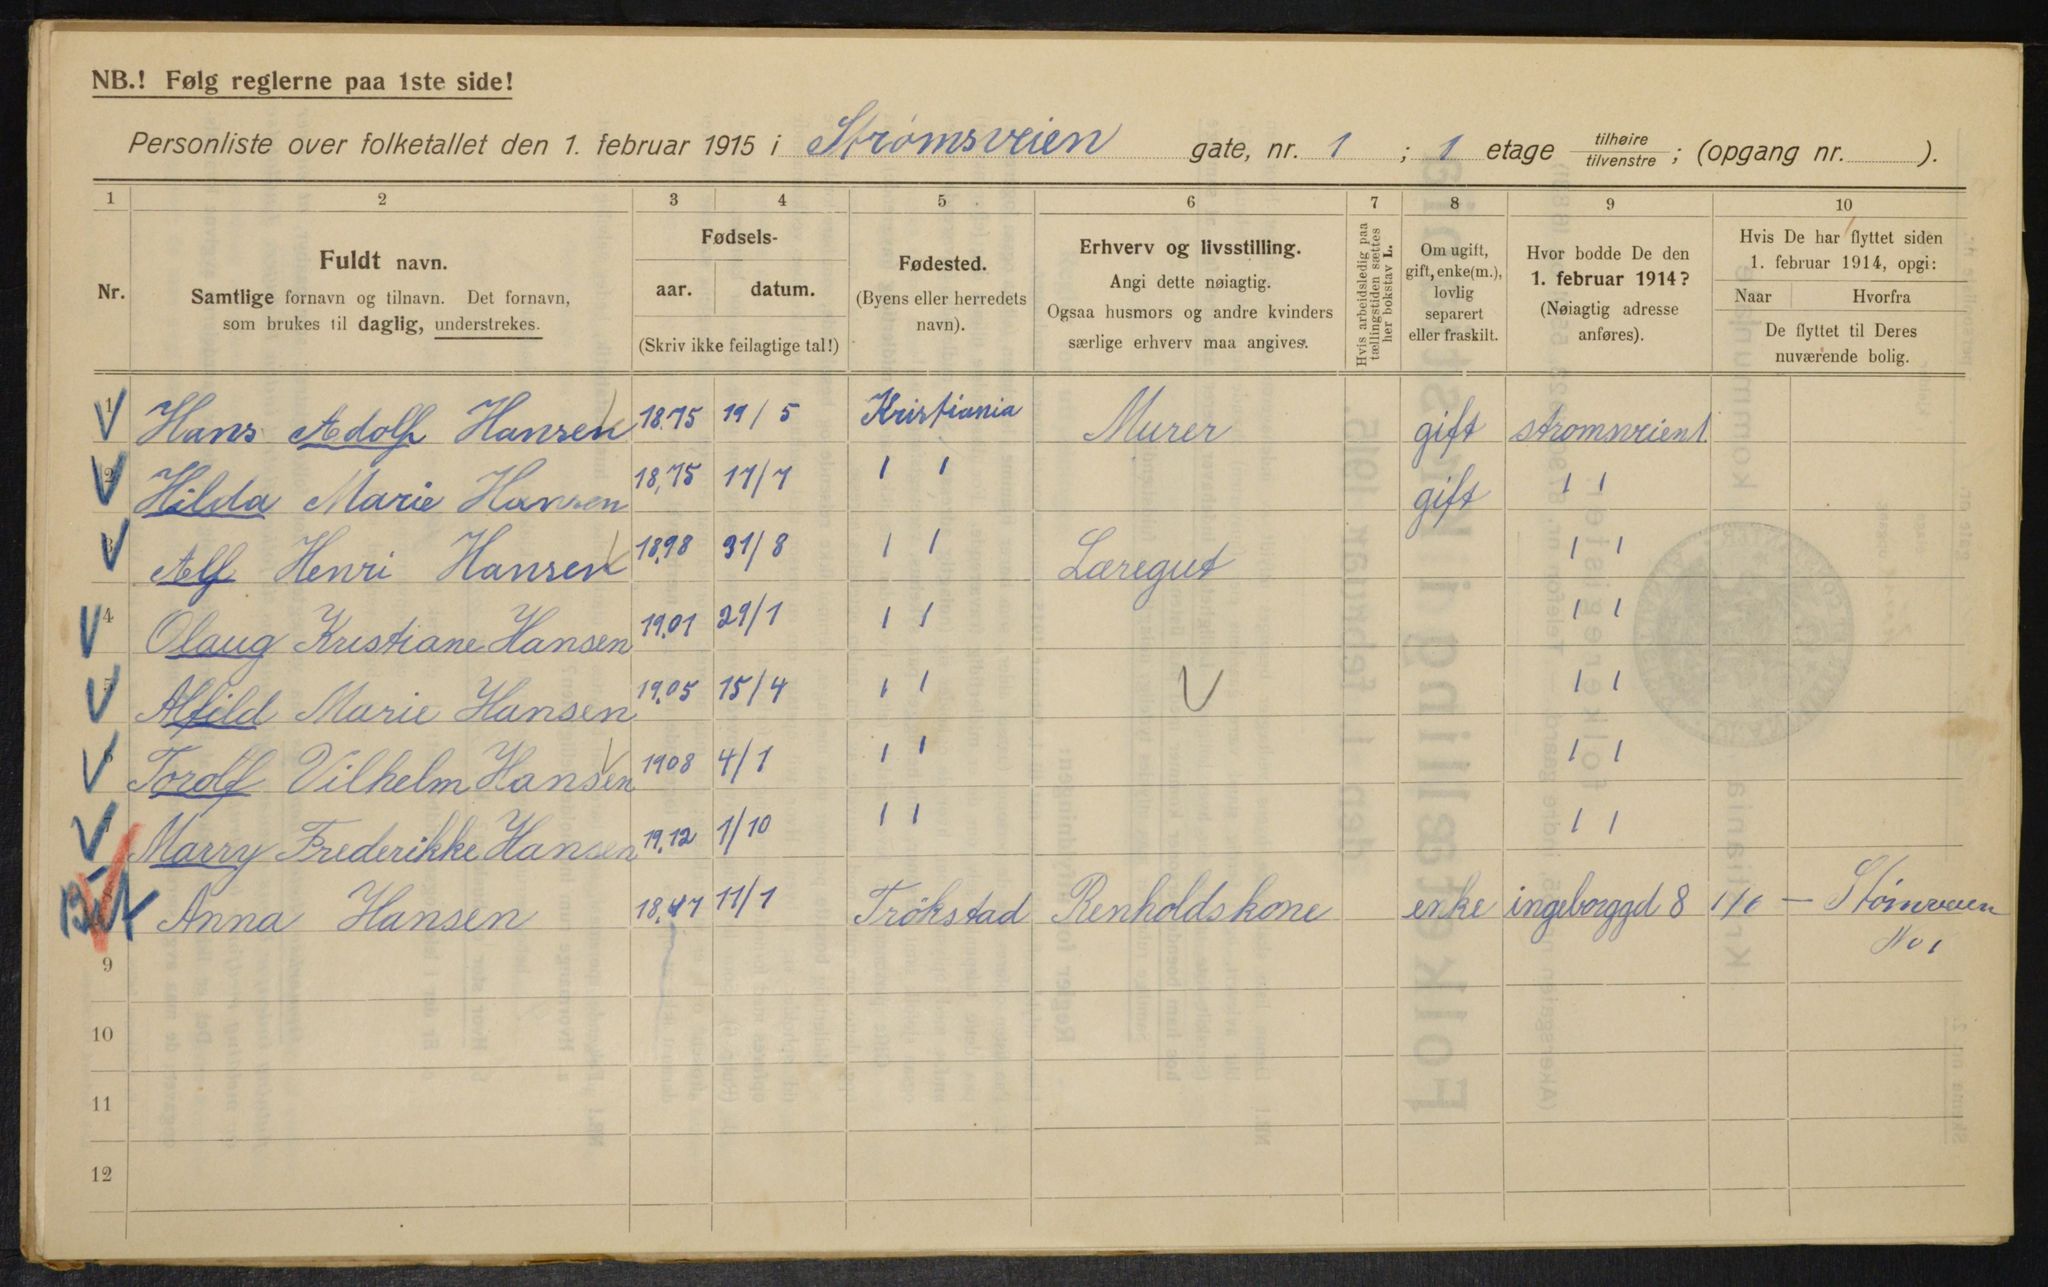 NB.! Følg reglerne paa 1ste side!
Personliste over folketallet den 1. februar 1915 i Strømsveien gate, nr. 1 ; 1 etage tilhøire / tilvenstre ; (opgang nr. ).
1 2 3 4 5 6 7 8 9 10
Nr.
Fuldt navn.
Samtlige fornavn og tilnavn. Det fornavn,
som brukes til daglig, understrekes.
Fødsels-
aar. datum.
(Skriv ikke feilagtige tal!)
Fødested.
(Byens eller herredets
navn).
Erhverv og livsstilling.
Angi dette nøiagtig.
Ogsaa husmors og andre kvinders
særlige erhverv maa angives.
Hvis arbeidsledig paa
tællingstiden sættes
her bokstav L.
Om ugift,
gift, enke(m.),
lovlig
separert
eller fraskilt.
Hvor bodde De den
1. februar 1914?
(Nøiagtig adresse
anføres).
Hvis De har flyttet siden
1. februar 1914, opgi:
Naar Hvorfra
De flyttet til Deres
nuværende bolig.
1 Hans Adolf Hansen 1875 19/5 Kristiania Murer gift strømsveien 1
2 Hilda Marie Hansen 1875 17/7 " gift "
3 Alf Henri Hansen 1898 31/8 " Læregut "
4 Olaug Kristiane Hansen 1901 29/1 " "
5 Alfild Marie Hansen 1905 15/4 " "
6 Torolf Vilhelm Hansen 1908 4/1 " "
Marry Frederikke Hansen 1912 1/10 " "
Anna Hansen 1847 11/1 Trökstad Renholdskone enke ingeborggd 8 — Stömveien
No 1
9
10
11
12